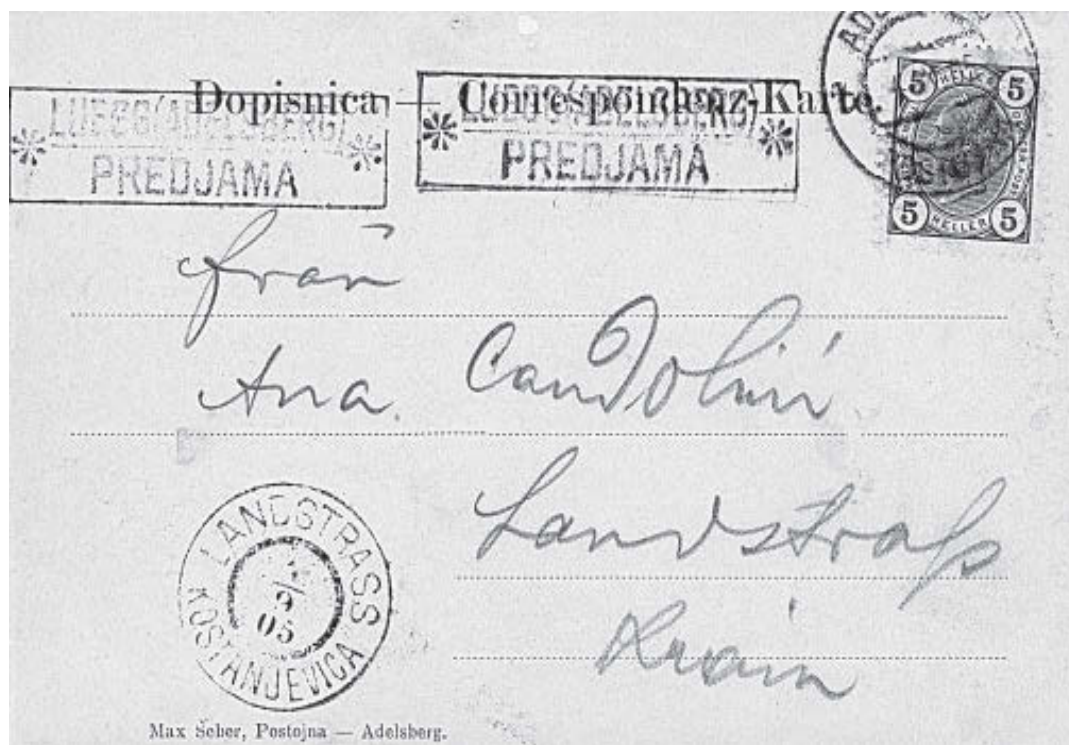 Dopisnica — Correspondenz-Karte.
LUEGG (ADELSBERG)
* PREDJAMA *
LUEGG (ADELSBERG)
* PREDJAMA *
5 HELLER 5
5 HELLER 5
Frau
Ana
Landstrass
Krain
LANDSTRASS
9
05
KOSTANJEVICA
Max Seber, Postojna — Adelsberg.